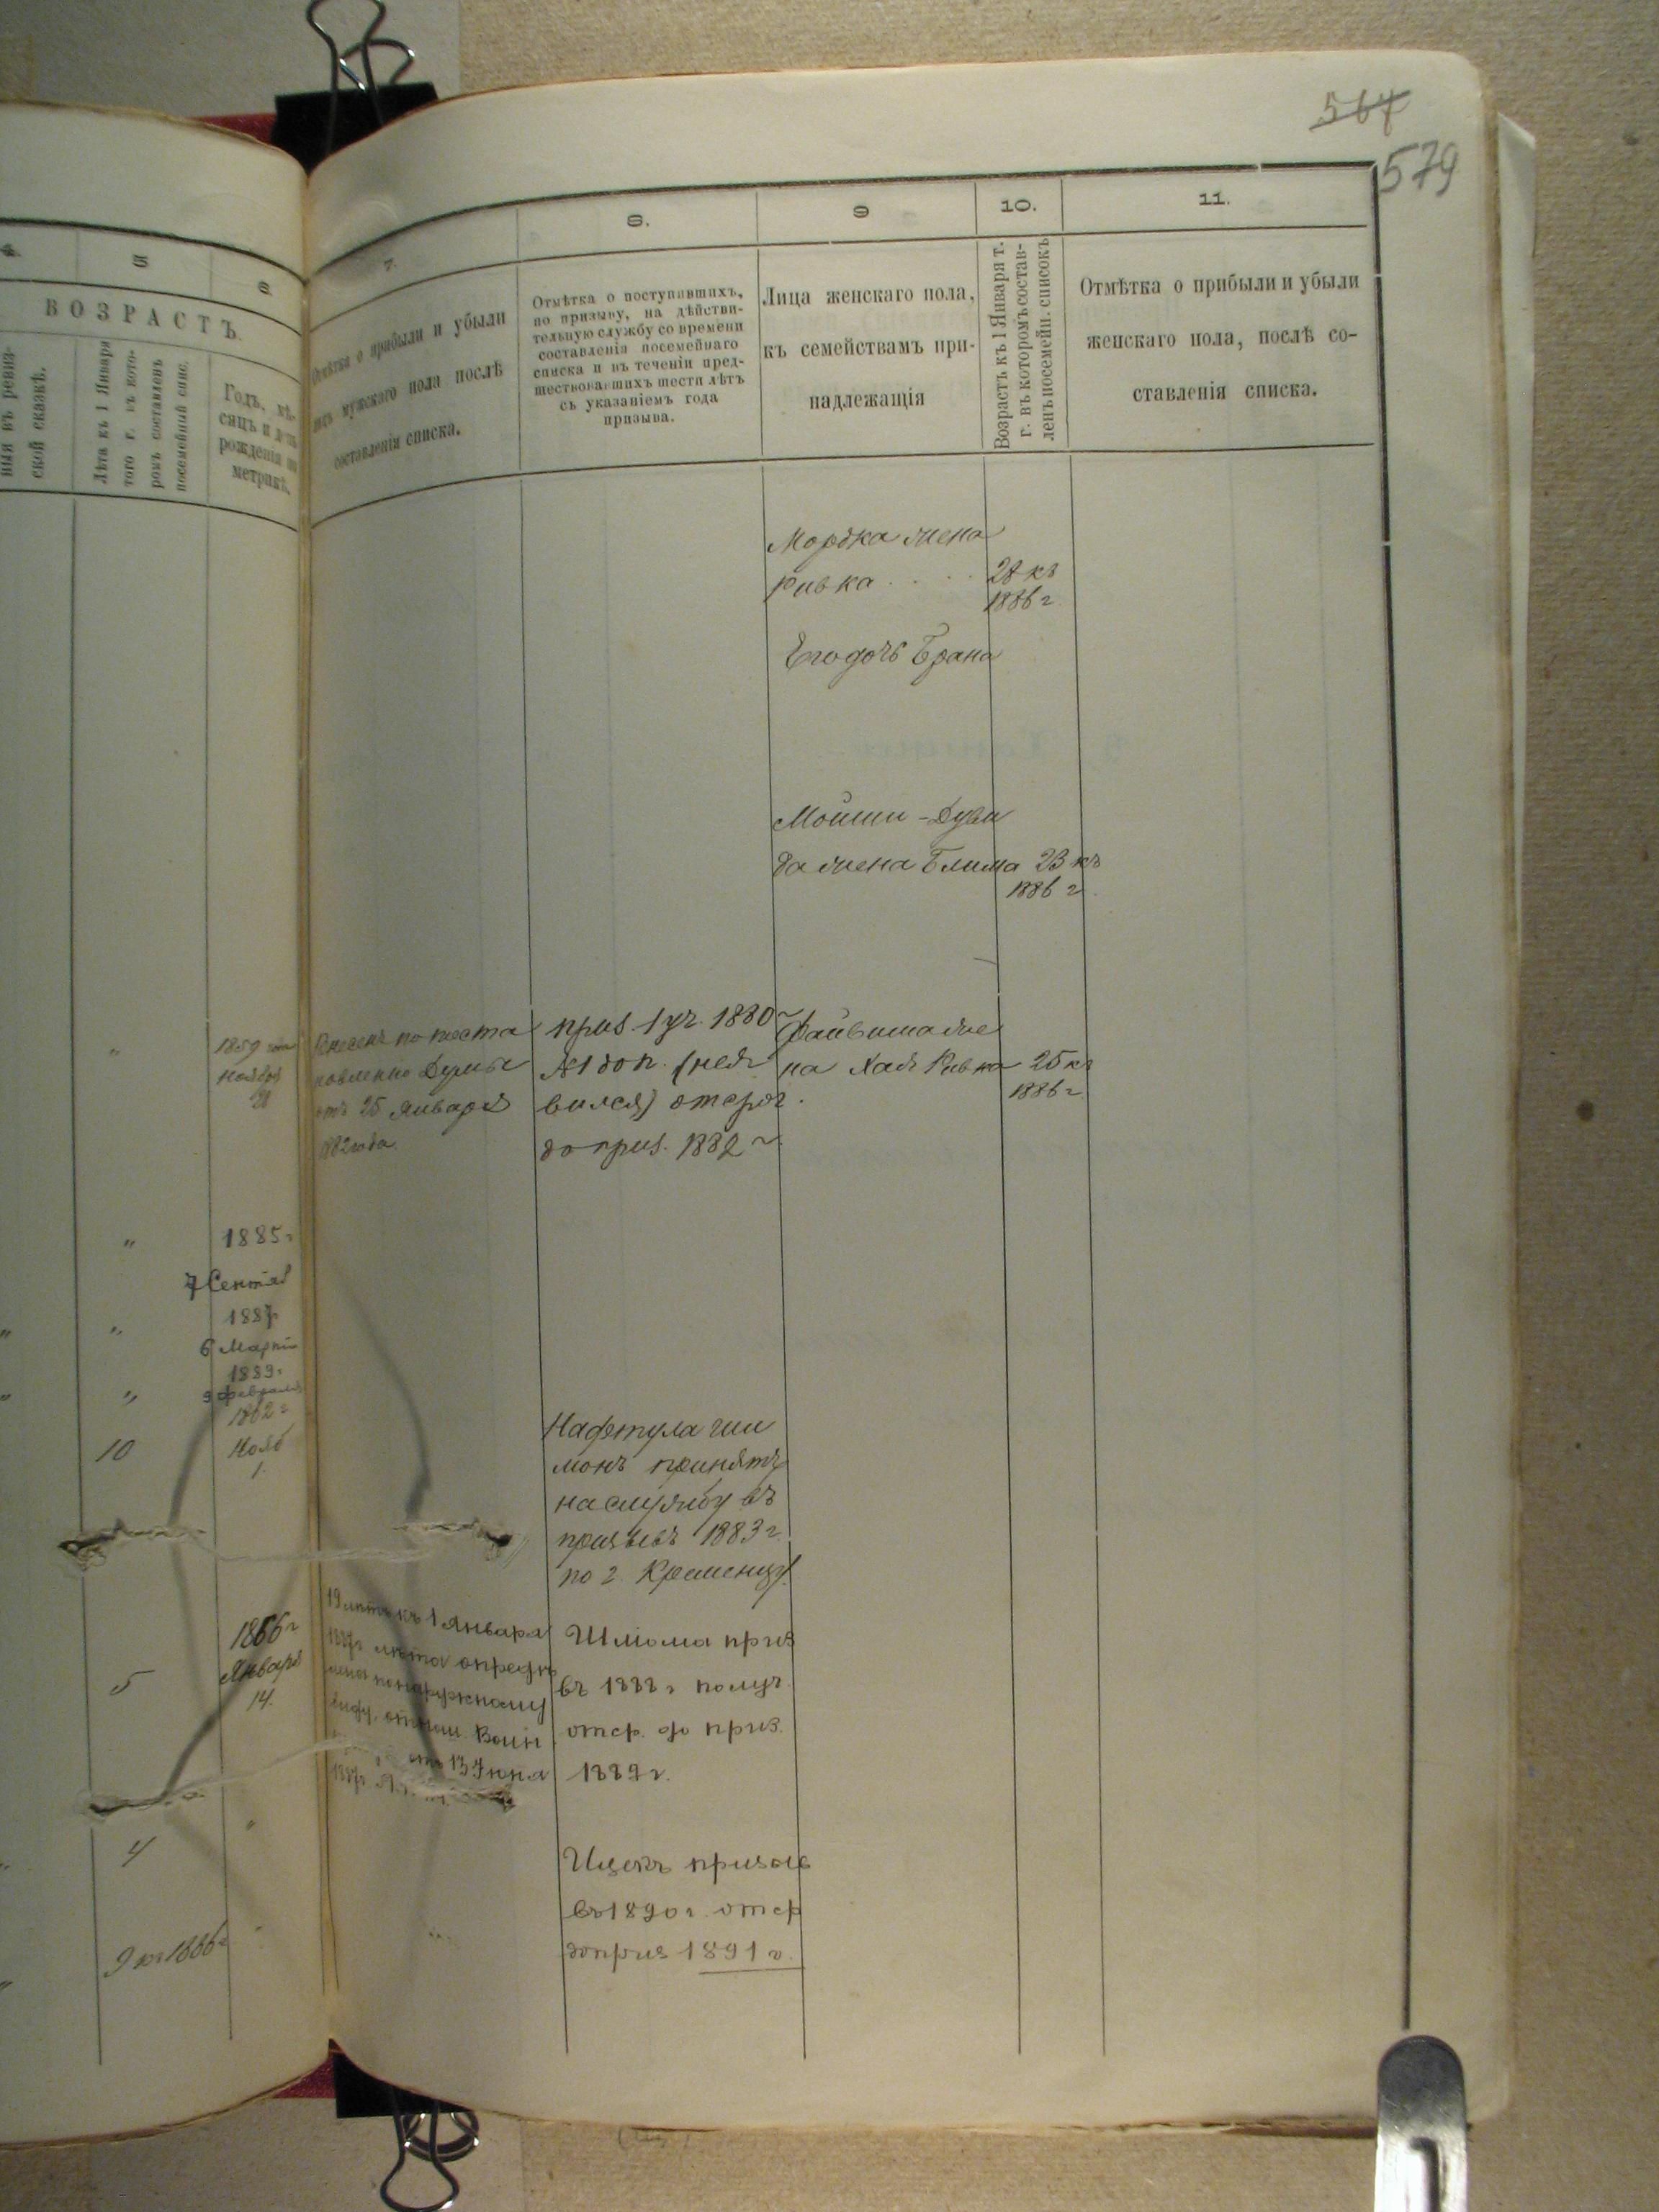 567
579
4.
5
6.
ВОЗРАСТЪ.
ныя въ ревиз-
ской сказкѣ.
Лѣта къ 1 Января
того г. въ кото-
ромъ составленъ
посемейный спис.
Годъ, мѣ-
сяцъ и день
рожденія по
метрикѣ.
7.
8.
9
10.
11.
Отмѣтка о прибыли и убыли
мужскаго пола послѣ
составленія списка.
Отмѣтка о поступившихъ,
по призыву, на дѣйстви-
тельную службу со времени
составленія посемейнаго
списка и въ теченіи пред-
шествовавшихъ шести лѣтъ
съ указаніемъ года
призыва.
Лица женскаго пола,
къ семействамъ при-
надлежащія
Возрастъ къ 1 Января т.
г. въ которомъ состав-
ленъ посемейн. списокъ
Отмѣтка о прибыли и убыли
женскаго пола, послѣ со-
ставленія списка.
Мордка жена
Ривка . . . . 28 къ
1886 г
Его дочь Брана
Мойши-Дуви
да жена Блима 23 къ
1886 г.
" 1859 года
Ноября
21
Внесенъ по поста
новленію Думы
отъ 25 Января
1882 года
приз. 1 уч. 1880 г
№1 доп. (неяв
вился) отсроч.
до приз. 1882 г
Файвиша же
на Хая Ривка 25 къ
1886 г
" 1885 г
7 Сентяб
" " 1887 г
6 Марта
1889 г
" " 9 Февраля
1862 г
10 Нояб
1.
Нафтула Ши
монъ принятъ
на службу въ
призывъ 1883 г.
по г. Кременцу.
1866 г
5 Января
14.
19 лѣтъ къ 1 Января
лѣта опредѣ
по наружному
виду, Воин
отъ 13 Іюня
Шліома приз
въ 1888 г получ.
отср. до приз.
1889 г.
4 "
Ицекъ призыв
въ 1890 г. отср
до приз 1891 г.
9 къ 1886 г "